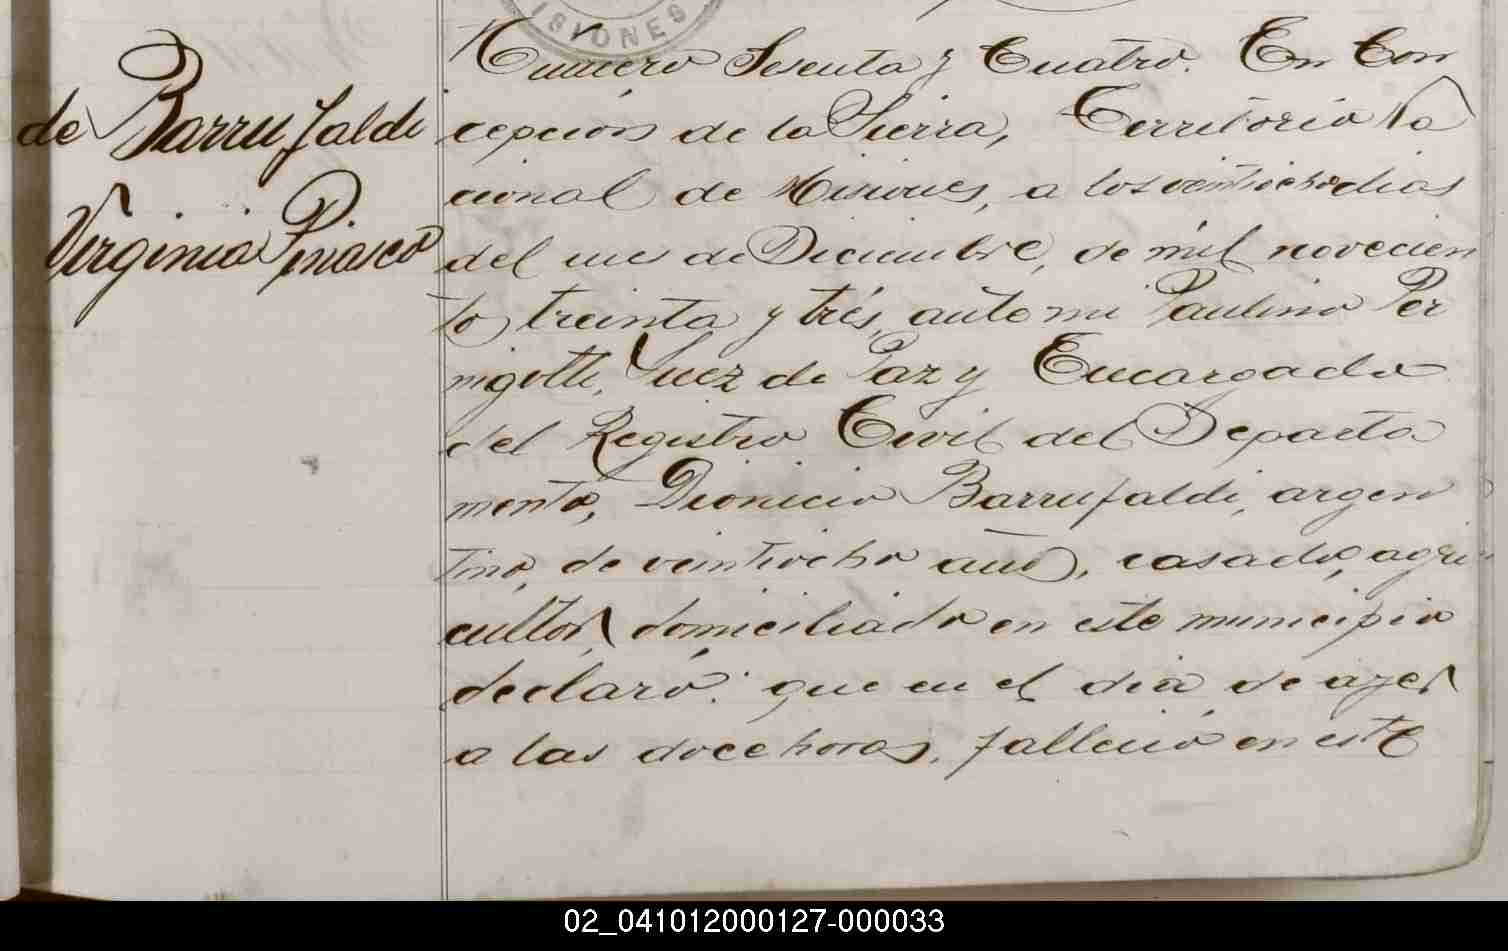 ISIONES
Numero Sesenta y Cuatro. En Con
cepción de la Sierra, Territorio Na
cional de Misiones, a los veintiocho dias
del mes de Diciembre, de mil novecien
to, treinta y trés, ante mi Paulino Per
nigotti, Juez de Paz y Encargado
del Registro Civil del Departa
mento, Dionicio Barrufaldi, argen
tino, de veintiocho años, casado, agri
cultor, domiciliado en este municipio
declaró: que en el dia de ayer
a las doce horas, falleció en este
de Barrufaldi
Virginia Pinasco
02_041012000127-000033